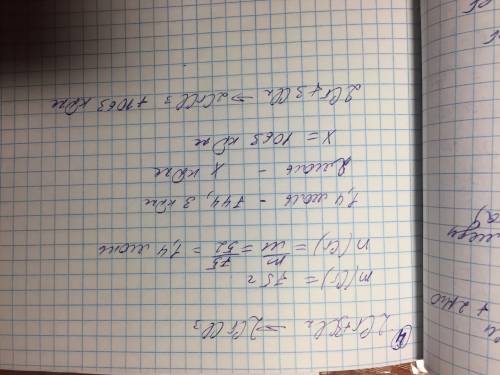 4) 2Cr+3Cl₂ → 2CrCl₃
m(Cr) = 75 г
n(Cr) = m/M = 75/52 = 1,4 моль
1,4 моль – 744,3 кДж
2 моль – x кДж
x = 1063 кДж
2Cr+3Cl₂ → 2CrCl₃ + 1063 кДж
+ 2H₂O